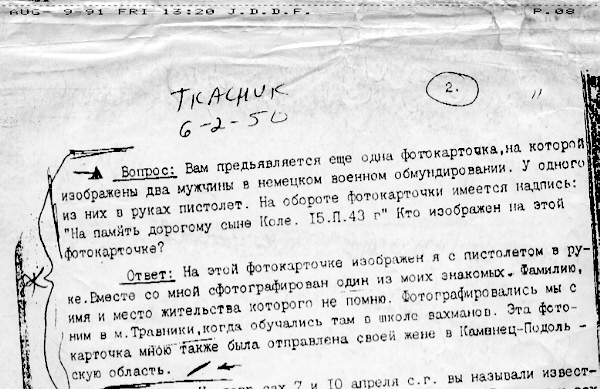 AUG- 9-91 FRI 13:20 J.D.D.F. P.08
TKACHUK
6-2-50
2.
Вопрос: Вам предьявляется еще одна фотокарточка,на которой
изображены два мужчины в немецком военном обмундировании. У одного
из них в руках пистолет. На обороте фотокарточки имеется надпись:
"На память дорогому сыне Коле. 15.П.43 г" Кто изображен на этой
фотокарточке?
Ответ: На этой фотокарточке изображен я с пистолетом в ру-
ке.Вместе со мной сфотографирован один из моих знакомых. Фамилию,
имя и место жительства которого не помню. Фотографировались мы с
ним в м.Травники,когда обучались там в школе вахманов. Эта фото-
карточка мною также была отправлена своей жене в Каменец-Подоль -
скую область.
сах 7 и 10 апреля с.г. вы называли извест-